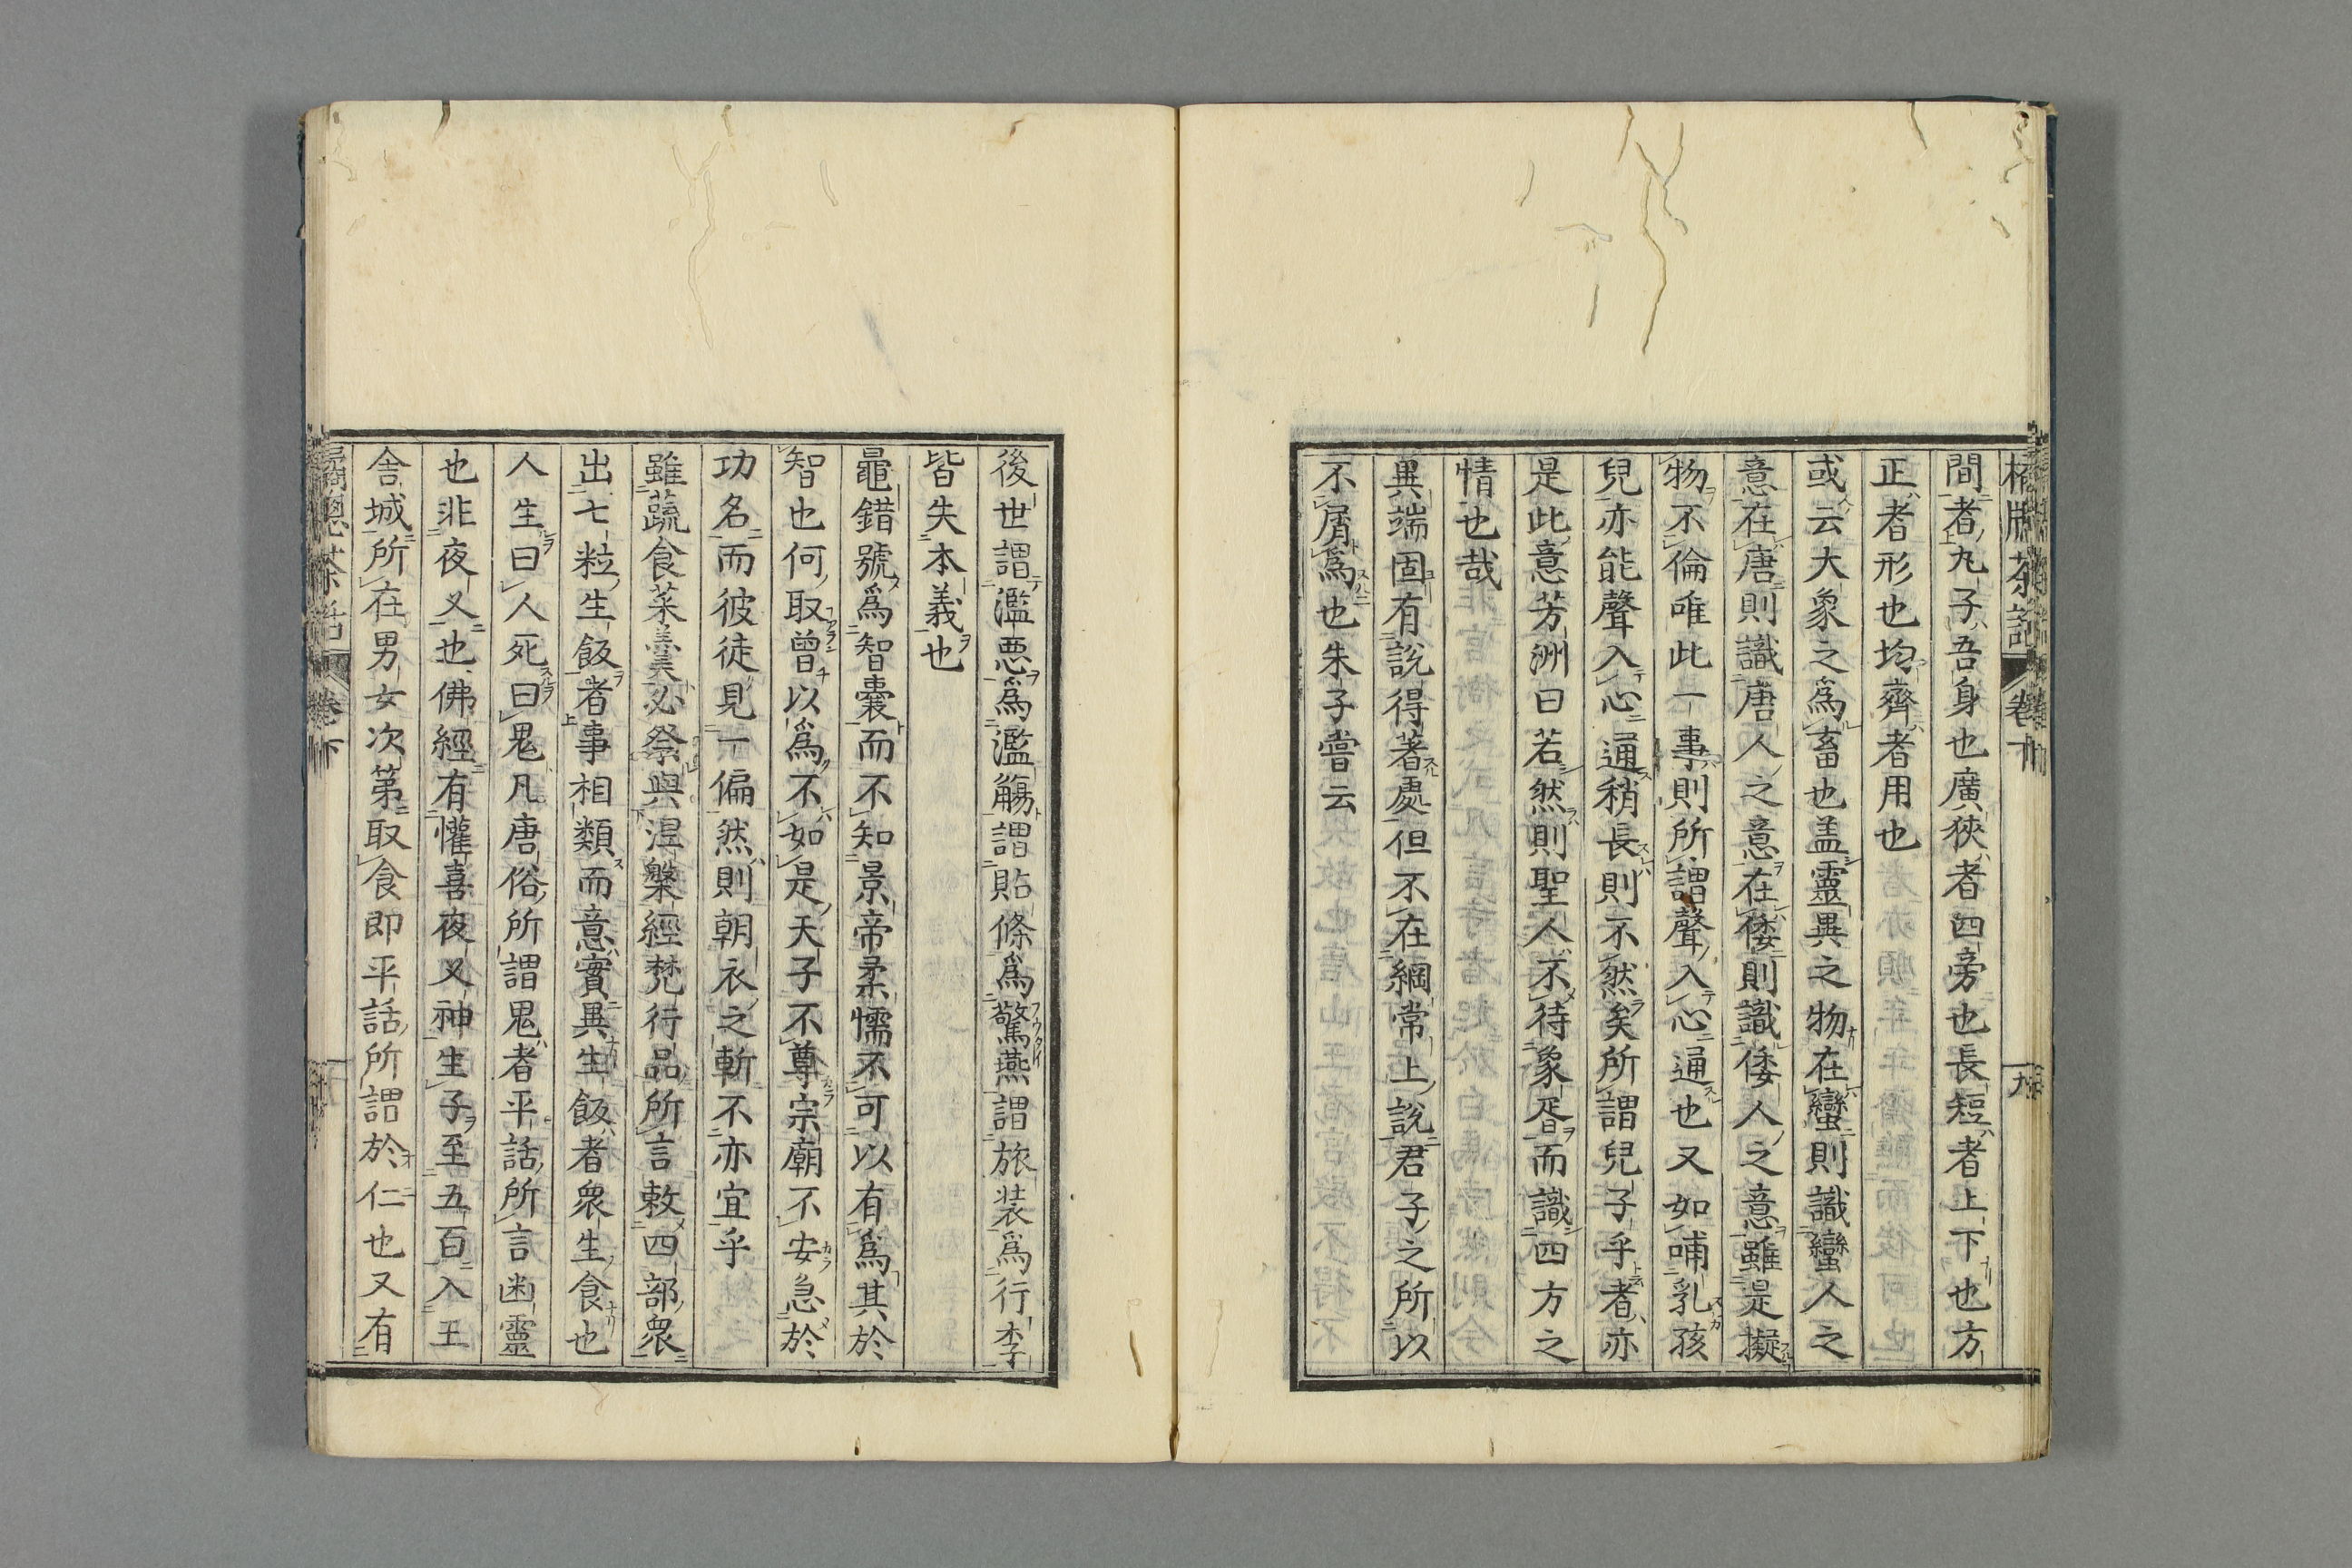 間者九子吾身也廣狹者四旁也長短者上下也方
正者形也均齊者用也
或云大象之為畜也盖靈異之物在蠻則識蠻人之
意在唐則識唐人之意在倭則識倭人之意雖是擬
物不倫唯此一事則所謂聲入心通也又如哺乳孩
兒亦能聲入心通稍長則不然矣所謂兒子乎者亦
是此意芳洲曰若然則聖人不待象胥而識四方之
情也哉
異端固有說得著處但不在綱常上說君子之所以
不屑為也朱子嘗云
後世謂濫悪為濫觴謂貼條為驚燕謂旅装為行李
皆失本義也
鼂錯號為智囊而不知景帝柔懦不可以有為其於
智也何取曾以為不如是天子不尊宗廟不安急於
功名而彼徒見一偏然則朝衣之斬不亦宜乎
雖蔬食菜羹必祭與涅槃經梵行品所言敕四部衆
出七粒生飯者事相類而意實異生飯者衆生食也
人生曰人死曰鬼凡唐俗所謂鬼者平話所言幽靈
也非夜叉也佛經有懽喜夜叉神生子至五百入王
舎城所在男女次第取食即平話所謂於仁也又有
卷下